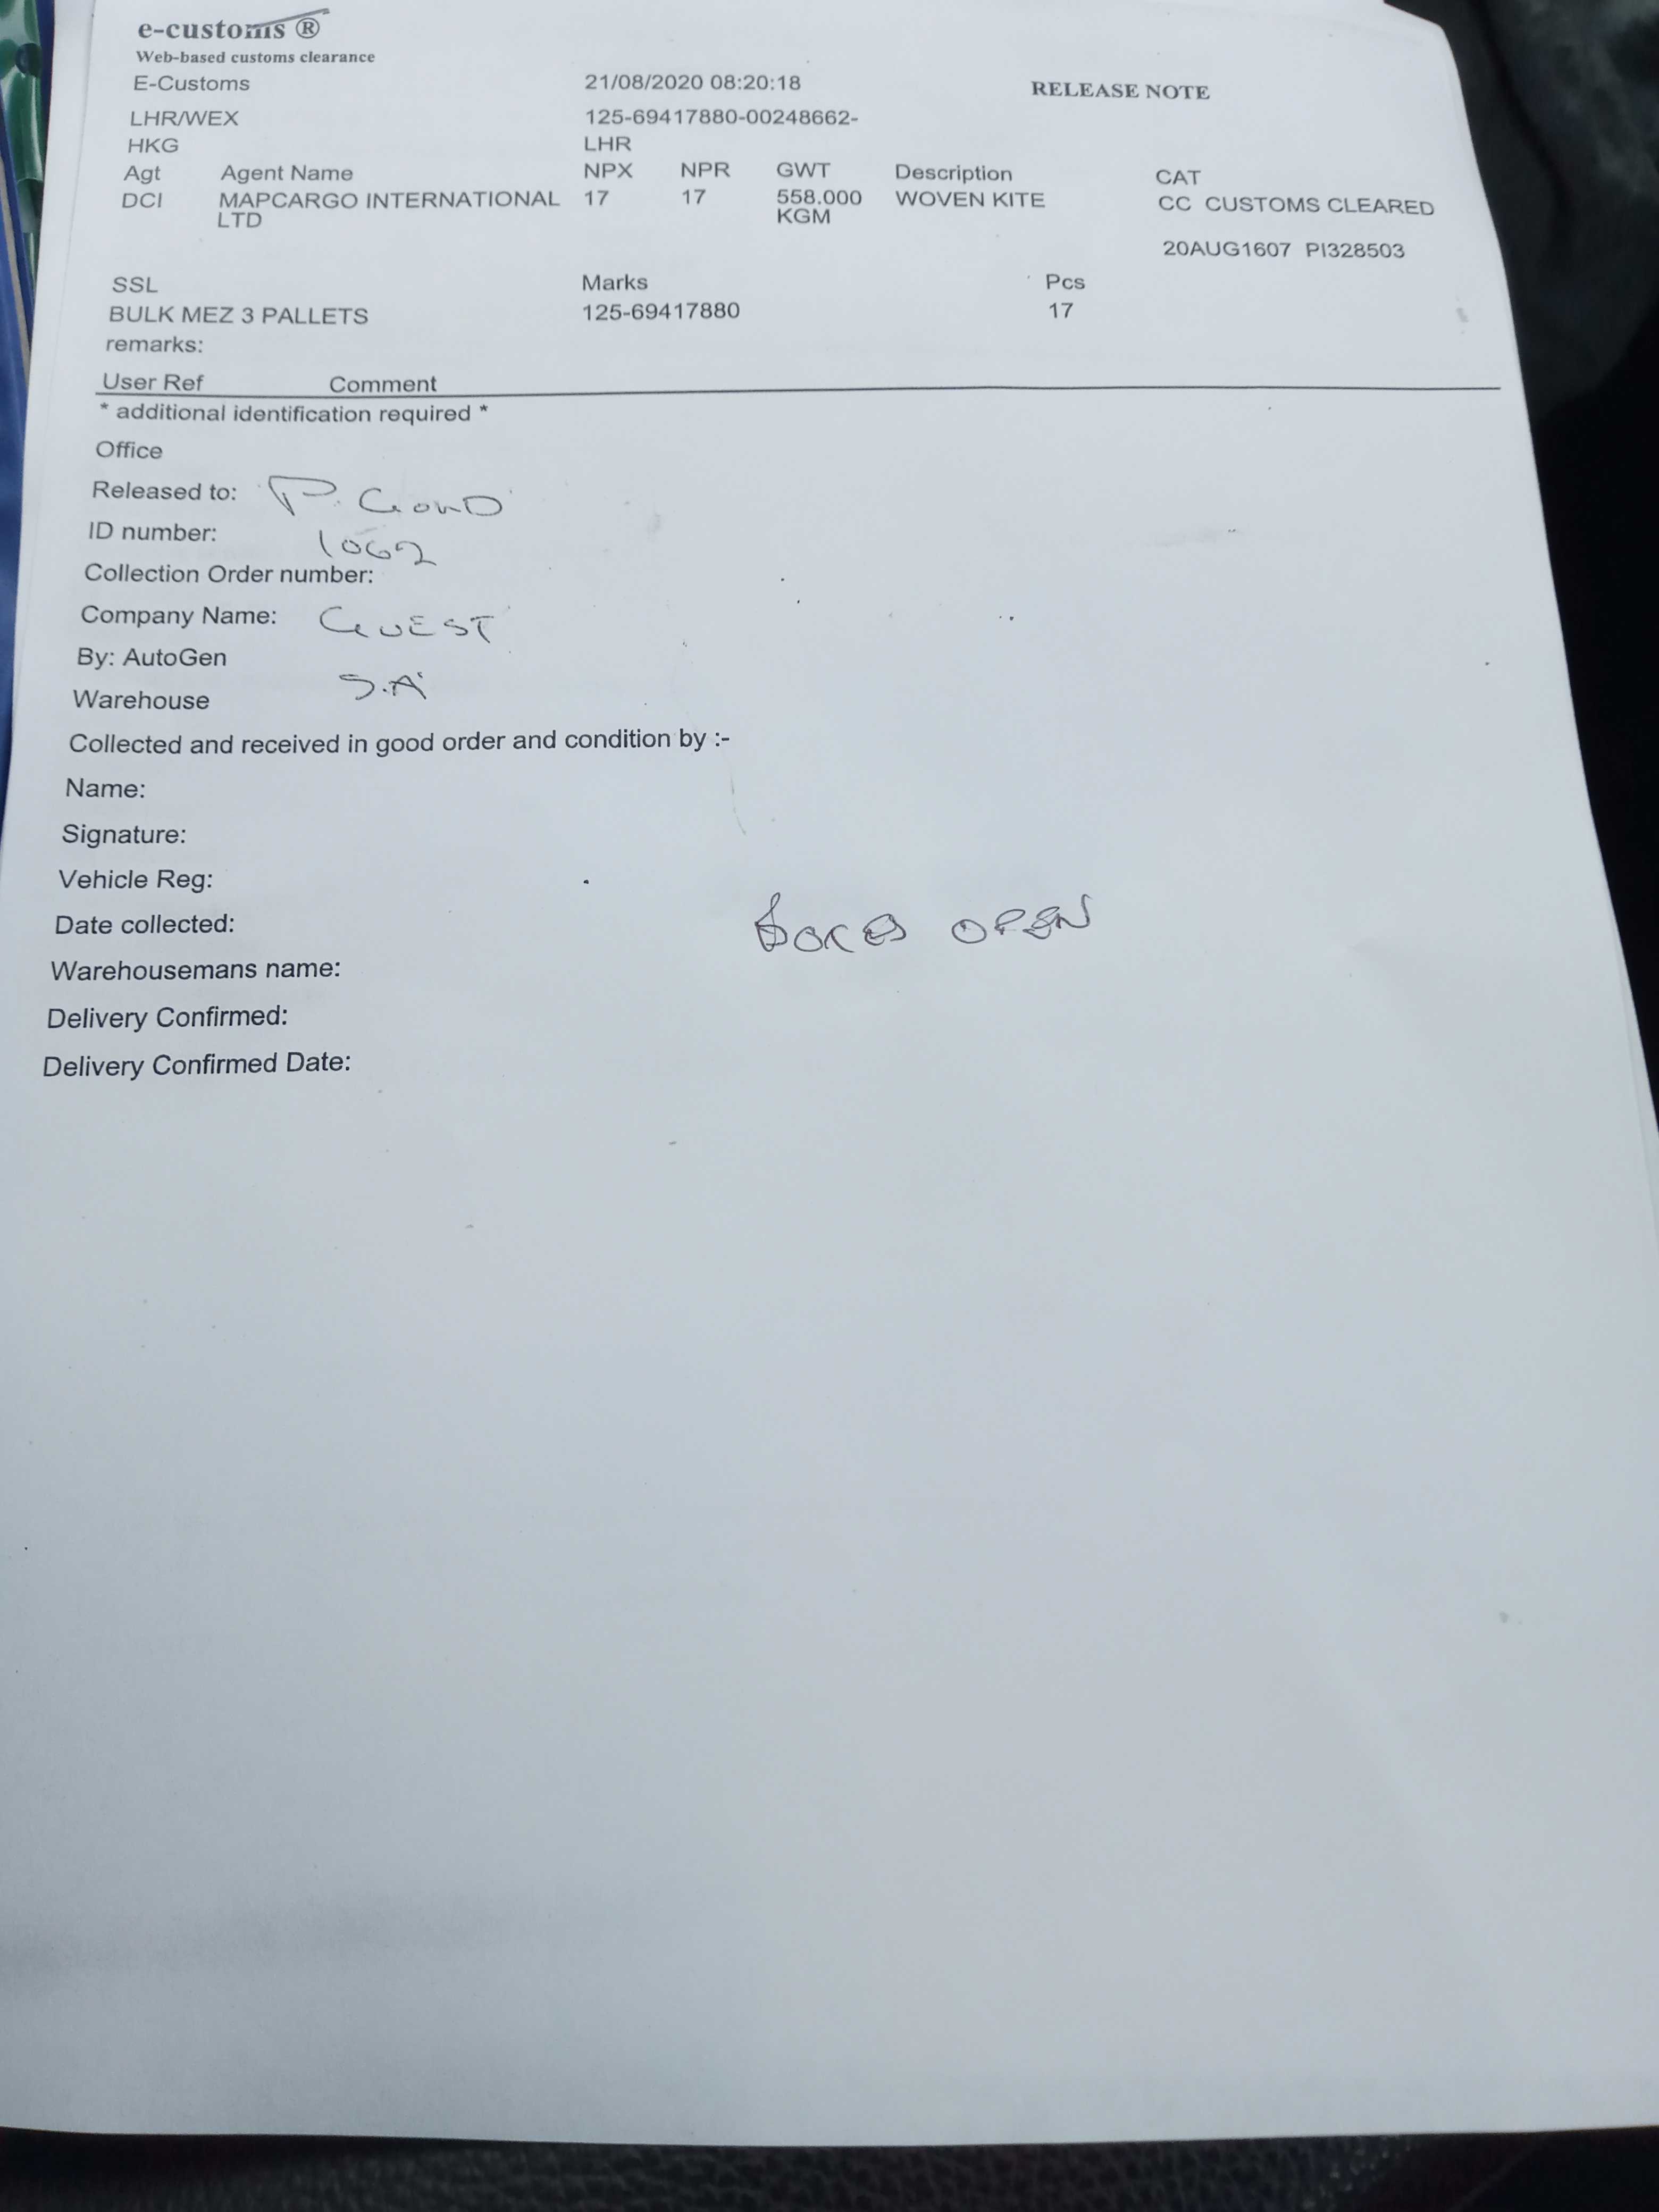 e-customs ®
Web-based customs clearance
E-Customs 21/08/2020 08:20:18 RELEASE NOTE
LHR/WEX 125-69417880-00248662-
HKG LHR
Agt Agent Name NPX NPR GWT Description CAT
DCI MAPCARGO INTERNATIONAL 17 17 558.000 WOVEN KITE CC CUSTOMS CLEARED
LTD KGM
20AUG1607 PI328503
SSL Marks Pcs
BULK MEZ 3 PALLETS 125-69417880 17
remarks:
User Ref Comment
* additional identification required *
Office
Released to: P.
ID number: 1062
Collection Order number:
Company Name: GUEST
By: AutoGen
S.A
Warehouse
Collected and received in good order and condition by :-
Name:
Signature:
Vehicle Reg:
Date collected: OPEN
Warehousemans name:
Delivery Confirmed:
Delivery Confirmed Date: